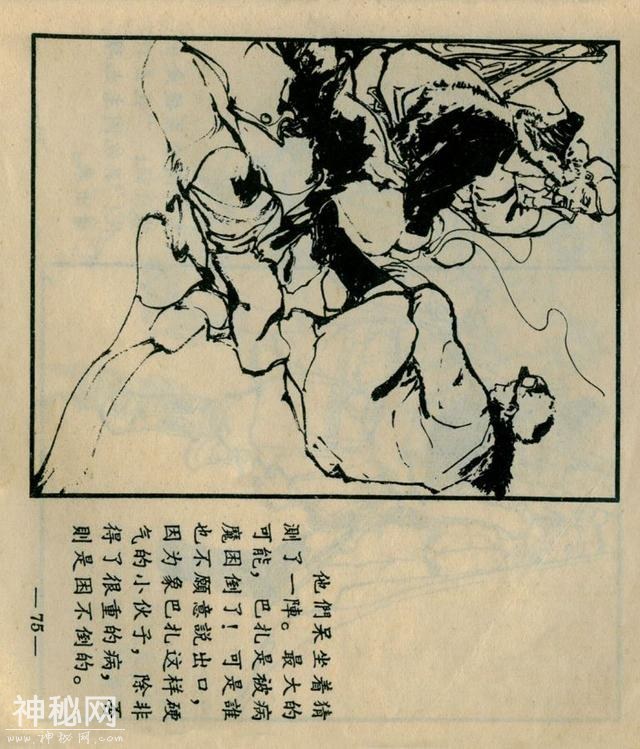 他們呆坐着猜
測了一陣。最大的
可能，巴扎是被病
魔困倒了！可是誰
也不願意說出口，
因为象巴扎这样硬
气的小伙子，除非
得了很重的病，否
則是困不倒的。
—75—
神秘网
www.神秘网.com